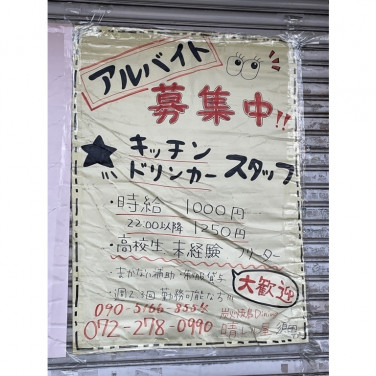 アルバイト
募集中!!
★キッチン
ドリンカー スタッフ
・時給 1000円
22:00以降 1250円
・高校生、未経験 フリーター
大歓迎
・まかない補助・制服貸与
・週2.3回 勤務可能な方
090-5766-8554
072-278-0990
炭火焼鳥Dining
晴れい屋